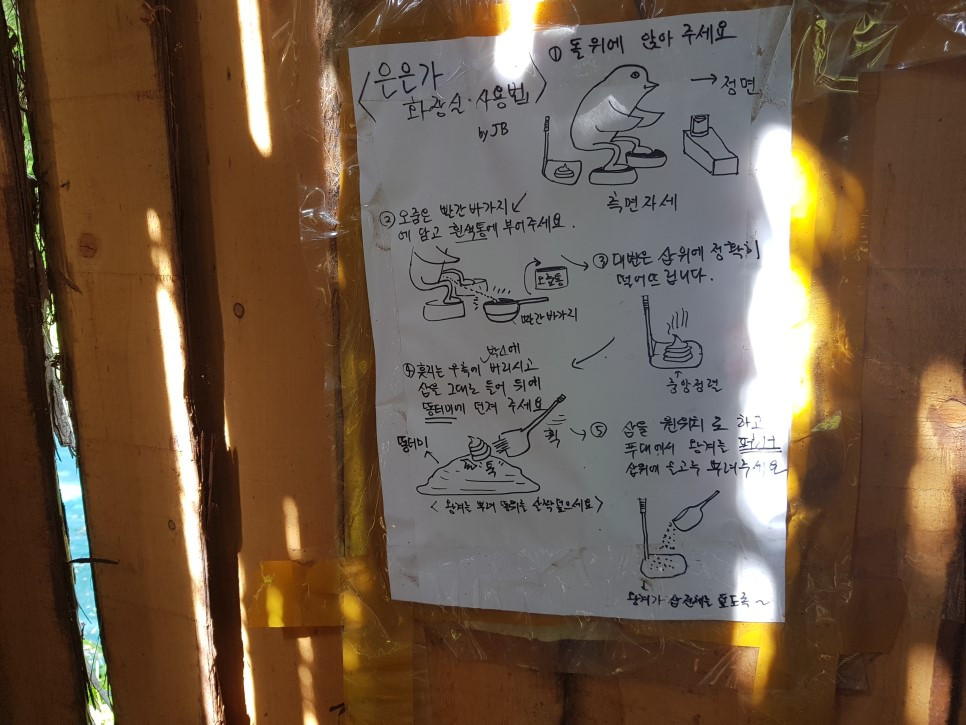 <은은가
화장실·사용법>
by JB
① 돌위에 앉아 주세요
→ 정면
측면자세
② 오줌은 빨간바가지
에 담고 흰색통에 부어주세요.
오줌통
빨간바가지
③ 대변은 삽위에 정확히
떨어뜨립니다.
중앙정렬
박스에
④ 휴지는 우측에 버리시고
삽을 그대로 들어 뒤에
똥더미에 던져 주세요
똥더미
휙
툭
<왕겨를 뿌려 똥위를 살짝 덮으세요>
⑤ 삽을 원위치로 하고
푸대에서 왕겨를 퍼서
삽위에 골고루 뿌려주세요
왕겨가 삽 전체를 덮도록~